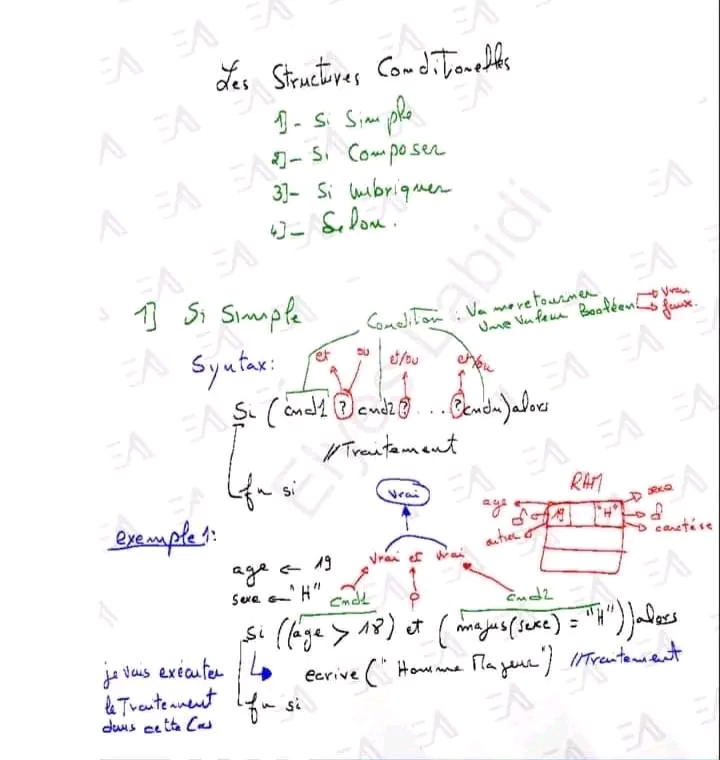 Les Structures Conditionelles
1]- Si Simple
2]- Si Composer
3]- Si imbriquer
4]- Selon.
1] Si Simple
Condition : Va me retourner
Une Valeur Booléen
Vrai
faux.
Syntax:
et ou et/ou et/ou
Si ( cnd1 ? cnd2 ? ... ? cndn) alors
//Traitement
fn si
Vrai
RAM
age
sexe
19 "H"
entier
caractére
exemple1:
age ← 19
sexe ← "H"
Vrai et Vrai
cnd1 cnd2
Si ((age > 18) et (majus(sexe) = "H")) alors
ecrire ("Homme Majeur") //Traitement
fn si
je vais exécuter
le Traitement
dans cette Cas
Elyes Labidi